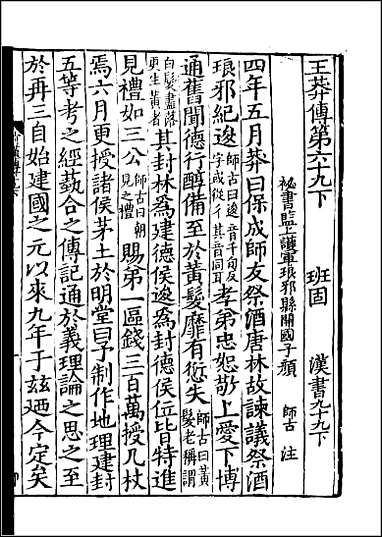 王莽傳第六十九下　　班固　　漢書九十九下
祕書監上護軍琅邪縣開國子顏　師古　注
四年五月莽曰保成師友祭酒唐林故諫議祭酒
琅邪紀逡師古曰逡音千旬反字或從彳其音同耳孝弟忠恕敬上愛下博
通舊聞德行醇備至於黃髮靡有愆失師古曰黃髮老稱謂
白髮盡落更生黃者其封林為建德侯逡為封德侯位皆特進
見禮如三公師古曰朝見之禮賜第一區錢三百萬授几杖
焉六月更授諸侯茅土於明堂曰予制作地理建封
五等考之經藝合之傳記通於義理論之思之至
於再三自始建國之元以來九年于茲迺今定矣